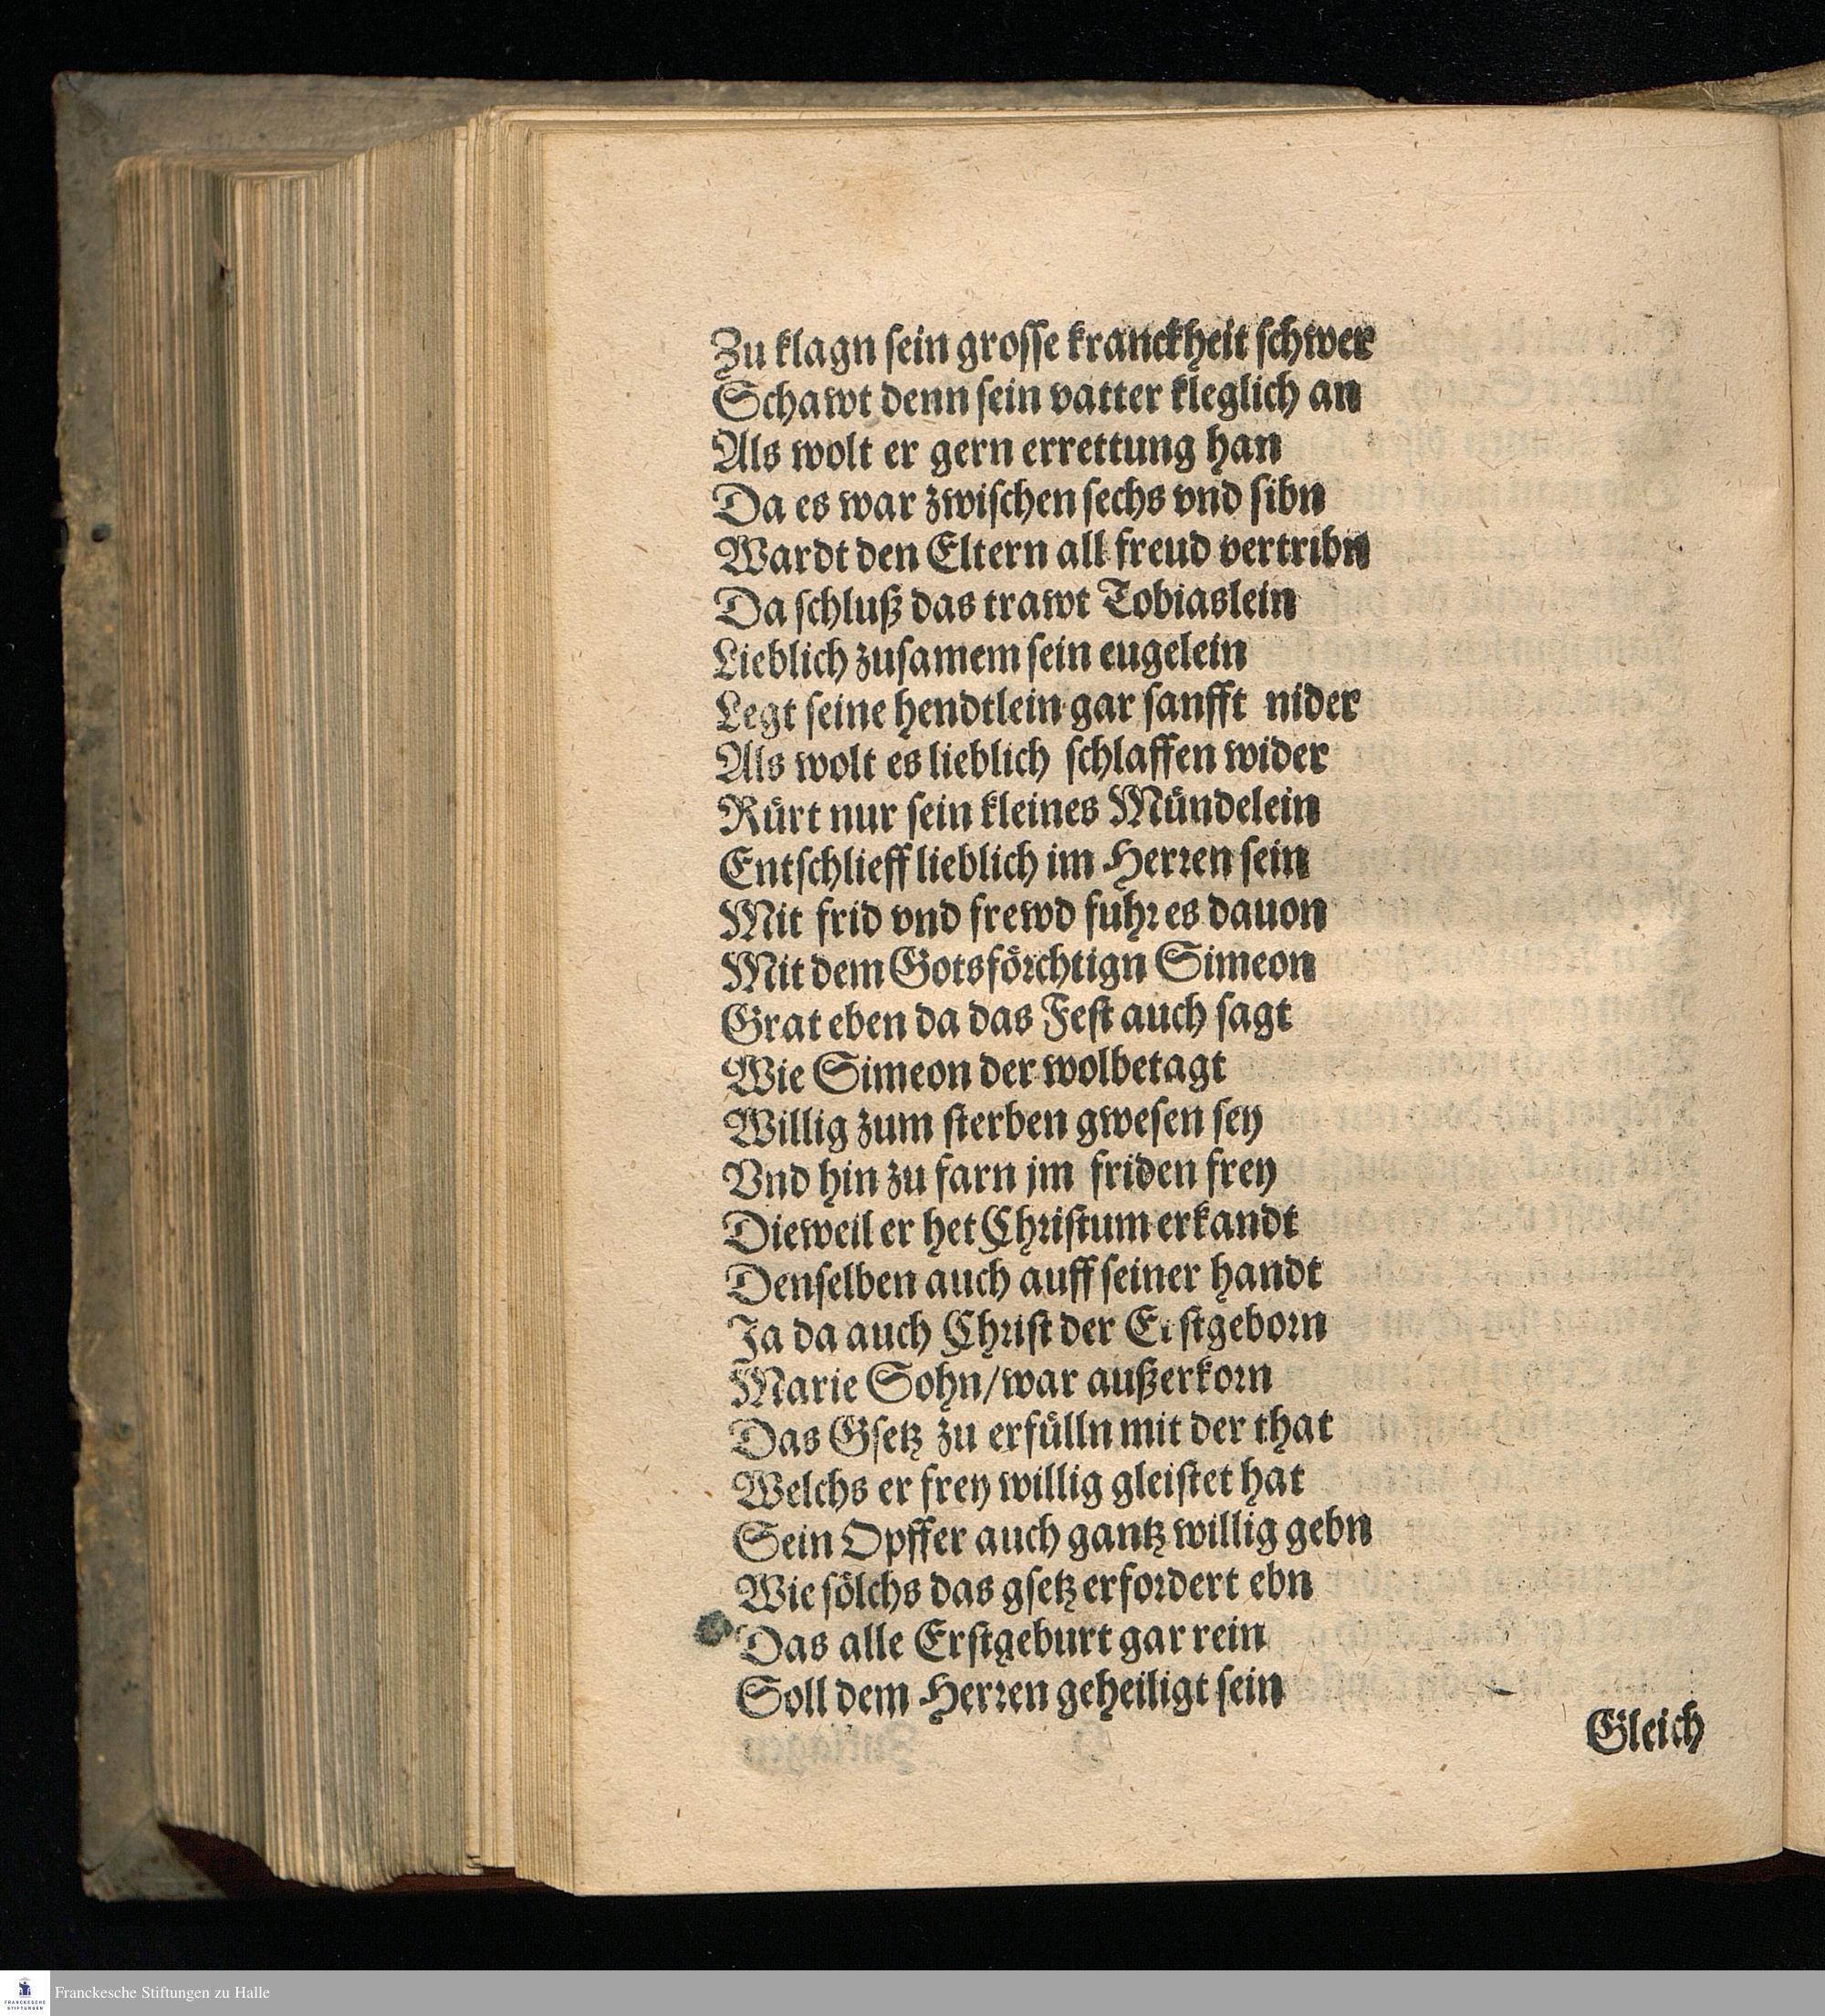 Zu klagn ſein groſſe kranckheit ſchwer
Schawt denn ſein vatter kleglich an
Als wolt er gern errettung han
Da es war zwiſchen ſechs vnd ſibn
Wardt den Eltern all freud vertribn
Da ſchluß das trawt Tobiaslein
Lieblich zuſamem ſein eugelein
Legt ſeine hendtlein gar ſanfft nider
Als wolt es lieblich ſchlaffen wider
Rürt nur ſein kleines Mündelein
Entſchlieff lieblich im Herꝛen ſein
Mit frid vnd frewd fuhꝛ es dauon
Mit dem Gotsföꝛchtign Simeon
Grat eben da das Feſt auch ſagt
Wie Simeon der wolbetagt
Willig zum ſterben gweſen ſey
Vnd hin zu farn jm friden frey
Dieweil er het Chꝛiſtum erkandt
Denſelben auch auff ſeiner handt
Ja da auch Chꝛiſt der Erſtgeboꝛn
Marie Sohn/war außerkoꝛn
Das Gſetz zu erfülln mit der that
Welchs er frey willig gleiſtet hat
Sein Opffer auch gantz willig gebn
Wie ſölchs das gſetz erfoꝛdert ebn
Das alle Erſtgeburt gar rein
Soll dem Herꝛen geheiligt ſein
Gleich
FRANCKESCHE
STIFTUNGEN
Franckesche Stiftungen zu Halle